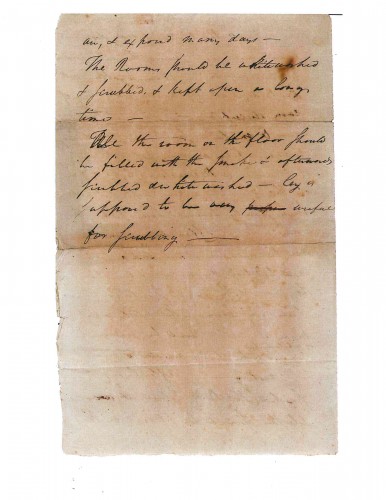 air, & expond many days —
The Rooms should be whitewashed
& scrubbed. & kept open a long
time —
All the room on the floor should
be filled with the smoke & afterwards
scrubbed & white washed — Ley is
supposed to be very
for scrubbing —